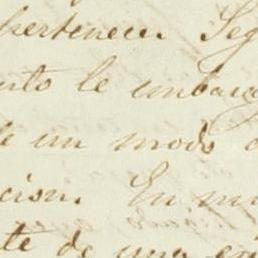 pertenece. Seg
nto le embara
de un modo
cion. En m
te de una